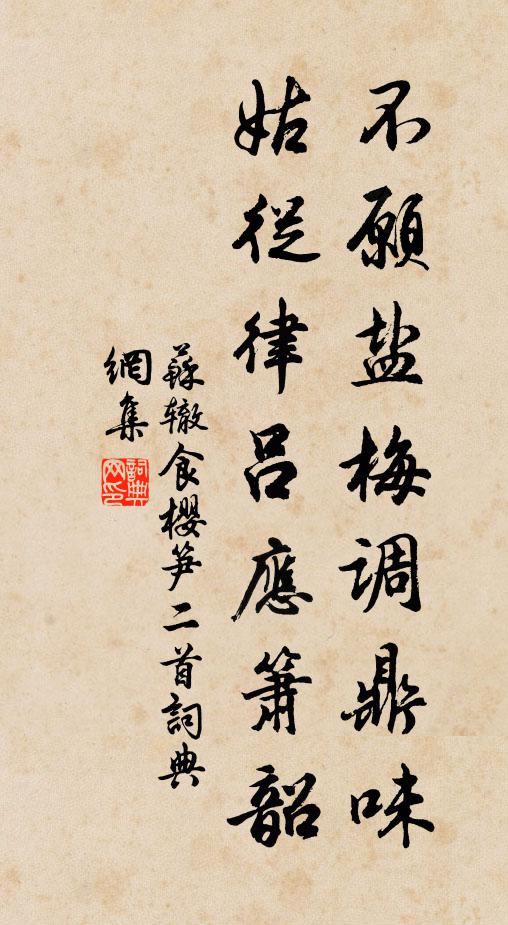 不願盐梅调鼎味
姑從律呂應箫韶
蘇辙食櫻笋二首詞典
網集
詞典
网印